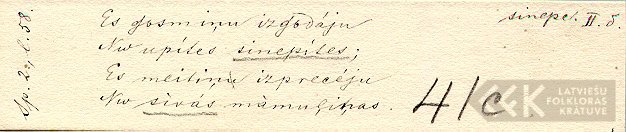 Es gosmiņu izgodāju
No upītes sinepītes;
Es meitiņu izprecēju
No sivās māmuļiņas.
sinepe. II. 5.
Sp. 2, l. 58.
41c
LATVIEŠU
FOLKLORAS
KRĀTUVE